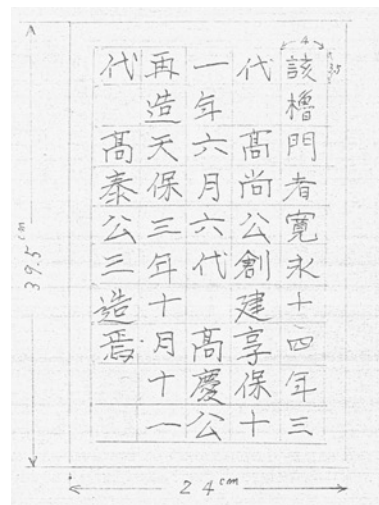 該櫓門者寛永十四年三
代　髙尚公創建享保十
一年六月六代　髙慶公
再造天保三年十月十一
代　髙泰公三造焉
4
39.5cm
24cm